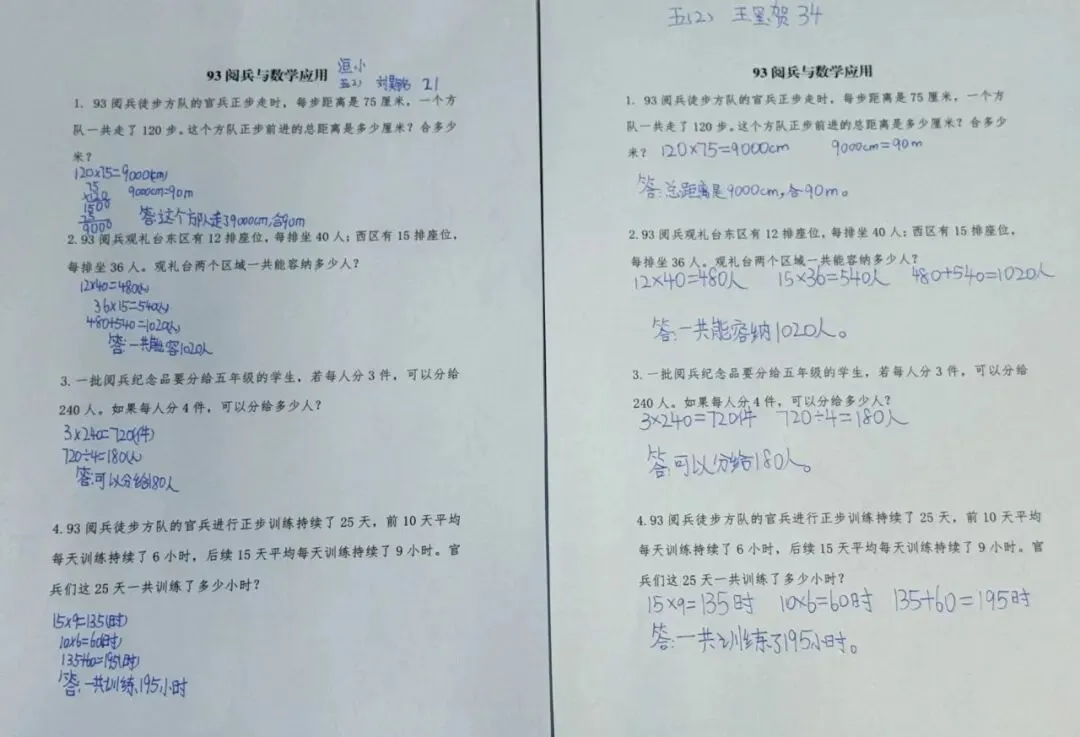 93 阅兵与数学应用
洹小
五(2) 刘 21
1. 93 阅兵徒步方队的官兵正步走时，每步距离是 75 厘米，一个方
队一共走了 120 步。这个方队正步前进的总距离是多少厘米？合多少
米？
120×75=9000(cm)
9000cm=90m
75
×120
1500
75
9000
答:这个方队走了9000cm,合90m
2.93 阅兵观礼台东区有 12 排座位，每排坐 40 人；西区有 15 排座位，
每排坐 36 人。观礼台两个区域一共能容纳多少人？
12×40=480(人)
36×15=540(人)
480+540=1020(人)
答:一共能容1020人
3. 一批阅兵纪念品要分给五年级的学生，若每人分 3 件，可以分给
240 人。如果每人分 4 件，可以分给多少人？
3×240=720(件)
720÷4=180(人)
答:可以分给180人
4.93 阅兵徒步方队的官兵进行正步训练持续了 25 天，前 10 天平均
每天训练持续了 6 小时，后续 15 天平均每天训练持续了 9 小时。官
兵们这 25 天一共训练了多少小时？
15×9=135(时)
10×6=60(时)
135+60=195(时)
答:一共训练195小时
五(2) 王墨贺 34
93 阅兵与数学应用
1. 93 阅兵徒步方队的官兵正步走时，每步距离是 75 厘米，一个方
队一共走了 120 步。这个方队正步前进的总距离是多少厘米？合多少
米？ 120×75=9000cm 9000cm=90m
答:总距离是9000cm,合90m。
2.93 阅兵观礼台东区有 12 排座位，每排坐 40 人；西区有 15 排座位，
每排坐 36 人。观礼台两个区域一共能容纳多少人？
12×40=480人 15×36=540人 480+540=1020人
答:一共能容纳1020人。
3. 一批阅兵纪念品要分给五年级的学生，若每人分 3 件，可以分给
240 人。如果每人分 4 件，可以分给多少人？
3×240=720件 720÷4=180人
答:可以分给180人。
4.93 阅兵徒步方队的官兵进行正步训练持续了 25 天，前 10 天平均
每天训练持续了 6 小时，后续 15 天平均每天训练持续了 9 小时。官
兵们这 25 天一共训练了多少小时？
15×9=135时 10×6=60时 135+60=195时
答:一共训练了195小时。